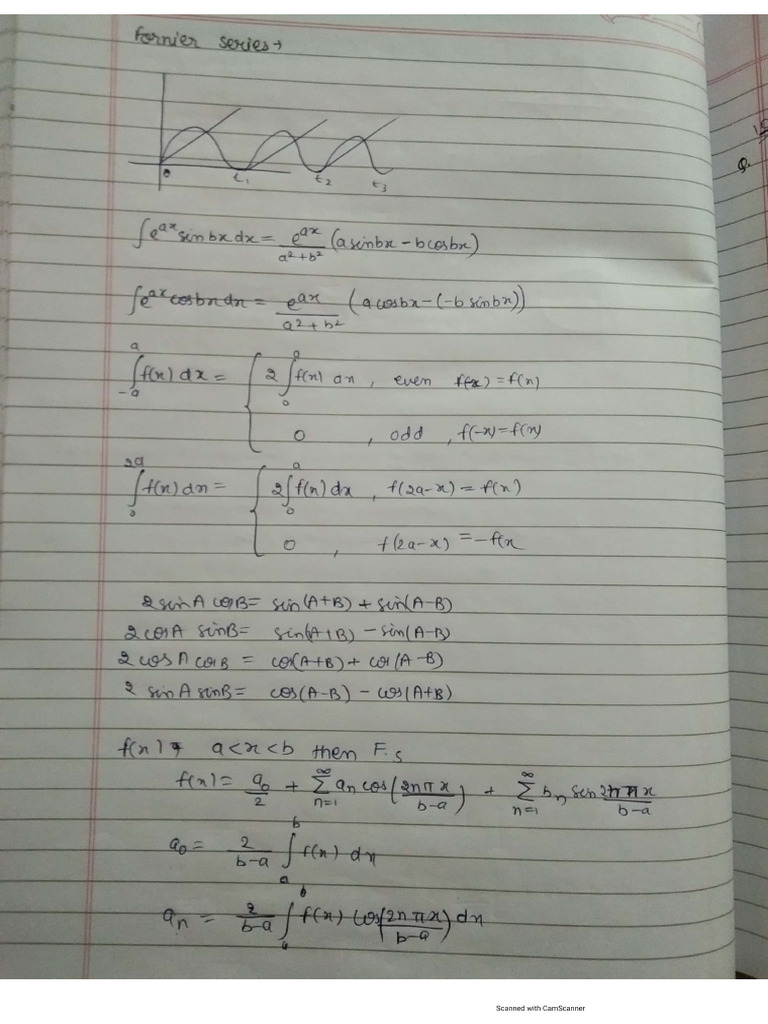 Fornier series→
0 t₁ t₂ t₃
∫e^{ax} sinbx dx = e^{ax}/(a²+b²) (a sinbx - b cosbx)
∫e^{ax} cosbx dx = e^{ax}/(a²+b²) (a cosbx - (-b sinbx))
∫_{-a}^{a} f(x) dx = { 2 ∫_{0}^{a} f(x) dx , even f(-x) = f(x)
0 , odd , f(-x) = f(x)
∫_{0}^{2a} f(x) dx = { 2∫_{0}^{a} f(x) dx , f(2a-x) = f(x)
0 , f(2a-x) = -f(x
2 sinA cosB = sin(A+B) + sin(A-B)
2 cosA sinB = sin(A+B) - sin(A-B)
2 cosA cosB = cos(A+B) + cos(A-B)
2 sinA sinB = cos(A-B) - cos(A+B)
f(x) → a<x<b then F.s
f(x) = a₀/2 + ∑_{n=1}^{∞} aₙ cos(2nπx/(b-a)) + ∑_{n=1}^{∞} bₙ sin 2nπx/(b-a)
a₀ = 2/(b-a) ∫_{a}^{b} f(x) dx
aₙ = 2/(b-a) ∫_{a}^{b} f(x) cos(2nπx/(b-a)) dx
Q.
Scanned with CamScanner